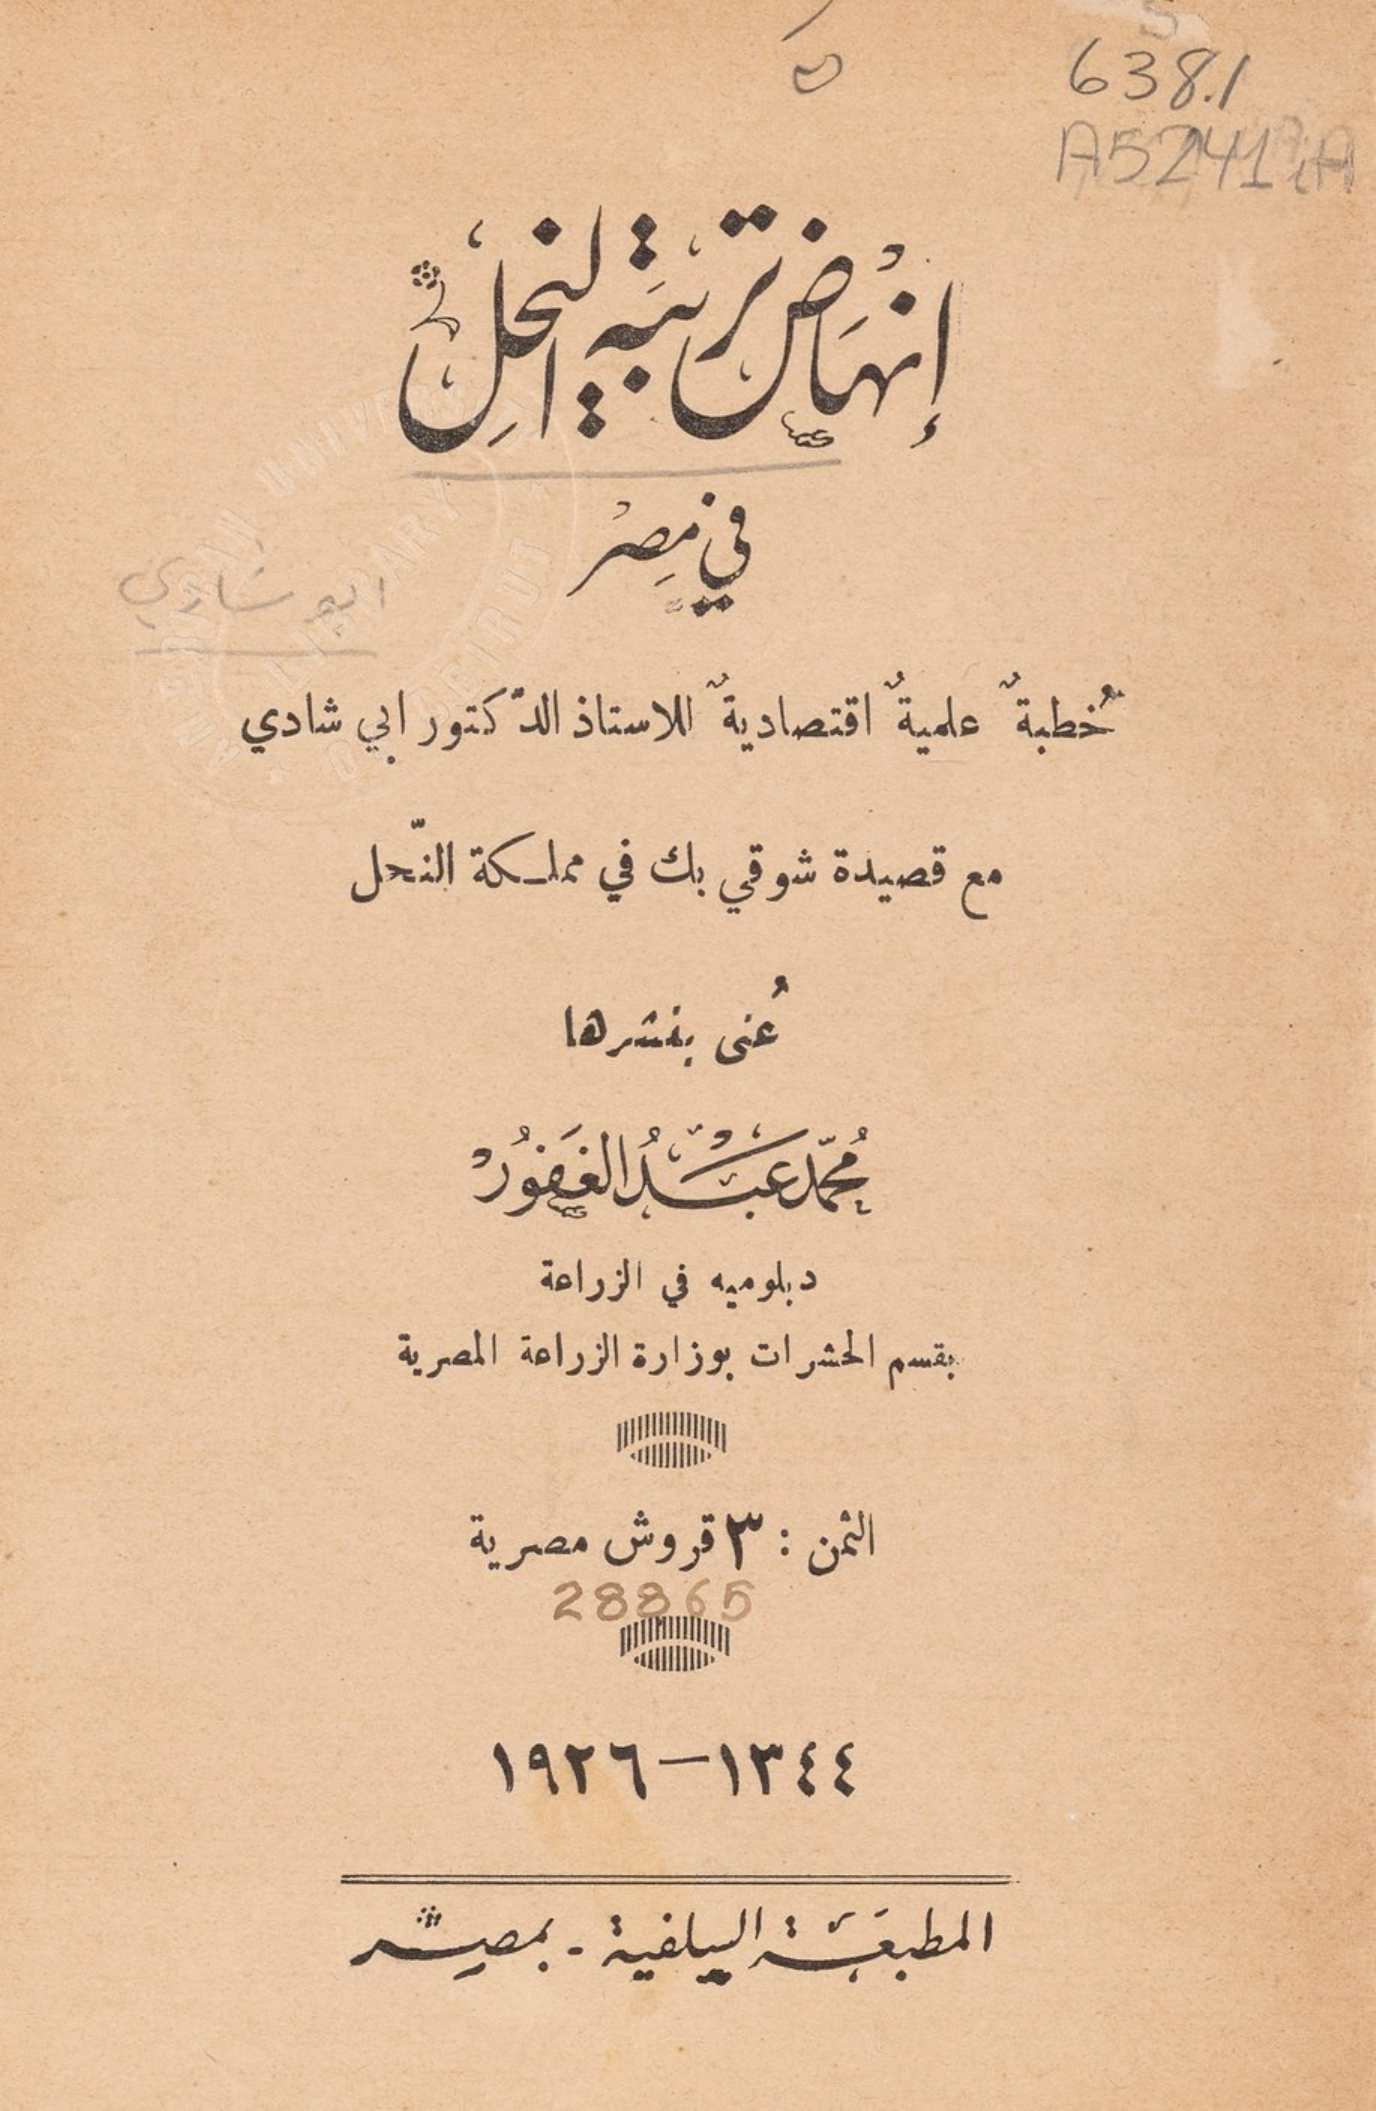 638.1
A5241iA
إنْهَاض تربيَة النحلِ
في مِصْر
ابو شادي
خُطبةٌ علميةٌ اقتصاديةٌ للاستاذ الدّكتور ابي شادي
مع قصيدة شوقي بك في مملكة النّحل
عُنى بنشرها
مُحمّد عبْدُ الغَفُورْ
دبلوميه في الزراعة
بقسم الحشرات بوزارة الزراعة المصرية
الثمن : ٣ قروش مصرية
28865
١٣٤٤ — ١٩٢٦
المطبعَة السلفية - بمصر